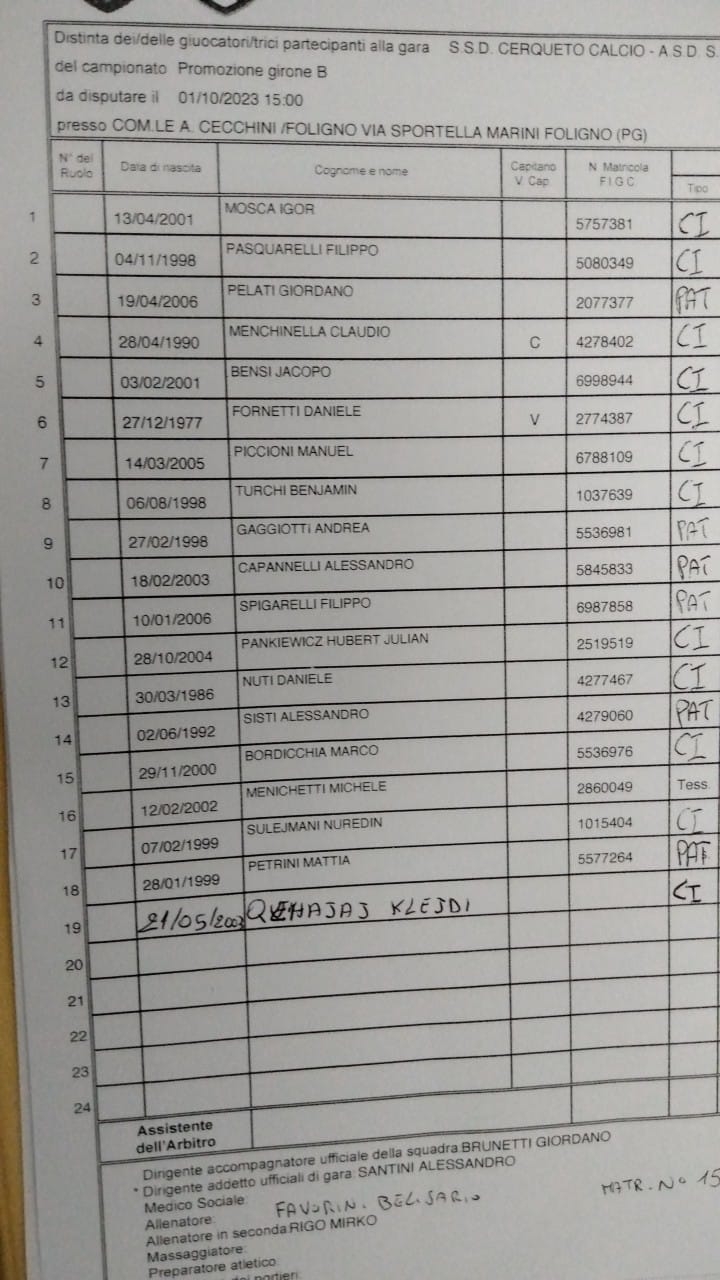 Distinta dei/delle giuocatori/trici partecipanti alla gara S.S.D. CERQUETO CALCIO - A.S.D. S.
del campionato Promozione girone B
da disputare il 01/10/2023 15:00
presso COM.LE A. CECCHINI /FOLIGNO VIA SPORTELLA MARINI FOLIGNO (PG)
N° del Ruolo Data di nascita Cognome e nome Capitano V. Cap. N. Matricola F.I.G.C. Tipo
1 13/04/2001 MOSCA IGOR 5757381 CI
2 04/11/1998 PASQUARELLI FILIPPO 5080349 CI
3 19/04/2006 PELATI GIORDANO 2077377 PAT
4 28/04/1990 MENCHINELLA CLAUDIO C 4278402 CI
5 03/02/2001 BENSI JACOPO 6998944 CI
6 27/12/1977 FORNETTI DANIELE V 2774387 CI
7 14/03/2005 PICCIONI MANUEL 6788109 CI
8 06/08/1998 TURCHI BENJAMIN 1037639 CI
9 27/02/1998 GAGGIOTTI ANDREA 5536981 PAT
10 18/02/2003 CAPANNELLI ALESSANDRO 5845833 PAT
11 10/01/2006 SPIGARELLI FILIPPO 6987858 PAT
12 28/10/2004 PANKIEWICZ HUBERT JULIAN 2519519 CI
13 30/03/1986 NUTI DANIELE 4277467 CI
14 02/06/1992 SISTI ALESSANDRO 4279060 PAT
15 29/11/2000 BORDICCHIA MARCO 5536976 CI
16 12/02/2002 MENICHETTI MICHELE 2860049 Tess.
17 07/02/1999 SULEJMANI NUREDIN 1015404 CI
18 28/01/1999 PETRINI MATTIA 5577264 PAT
19 21/05/2003 QEHAJAJ KLEJDI CI
20
21
22
23
24
Assistente dell'Arbitro
Dirigente accompagnatore ufficiale della squadra: BRUNETTI GIORDANO
* Dirigente addetto ufficiali di gara: SANTINI ALESSANDRO
Medico Sociale:
Allenatore: FAVORIN. BELISARIO MATR. N° 15
Allenatore in seconda: RIGO MIRKO
Massaggiatore:
Preparatore atletico:
dei portieri: